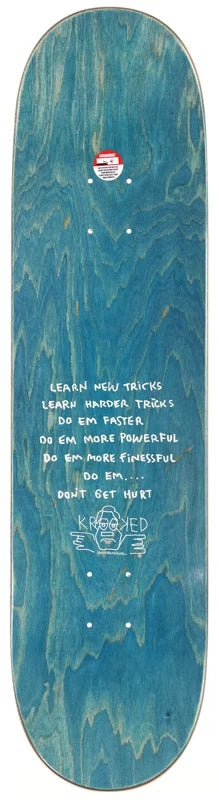 LEARN NEW TRICKS
LEARN HARDER TRICKS
DO EM FASTER
DO EM MORE POWERFUL
DO EM MORE FINESSFUL
DO EM....
DONT GET HURT
KROOKED